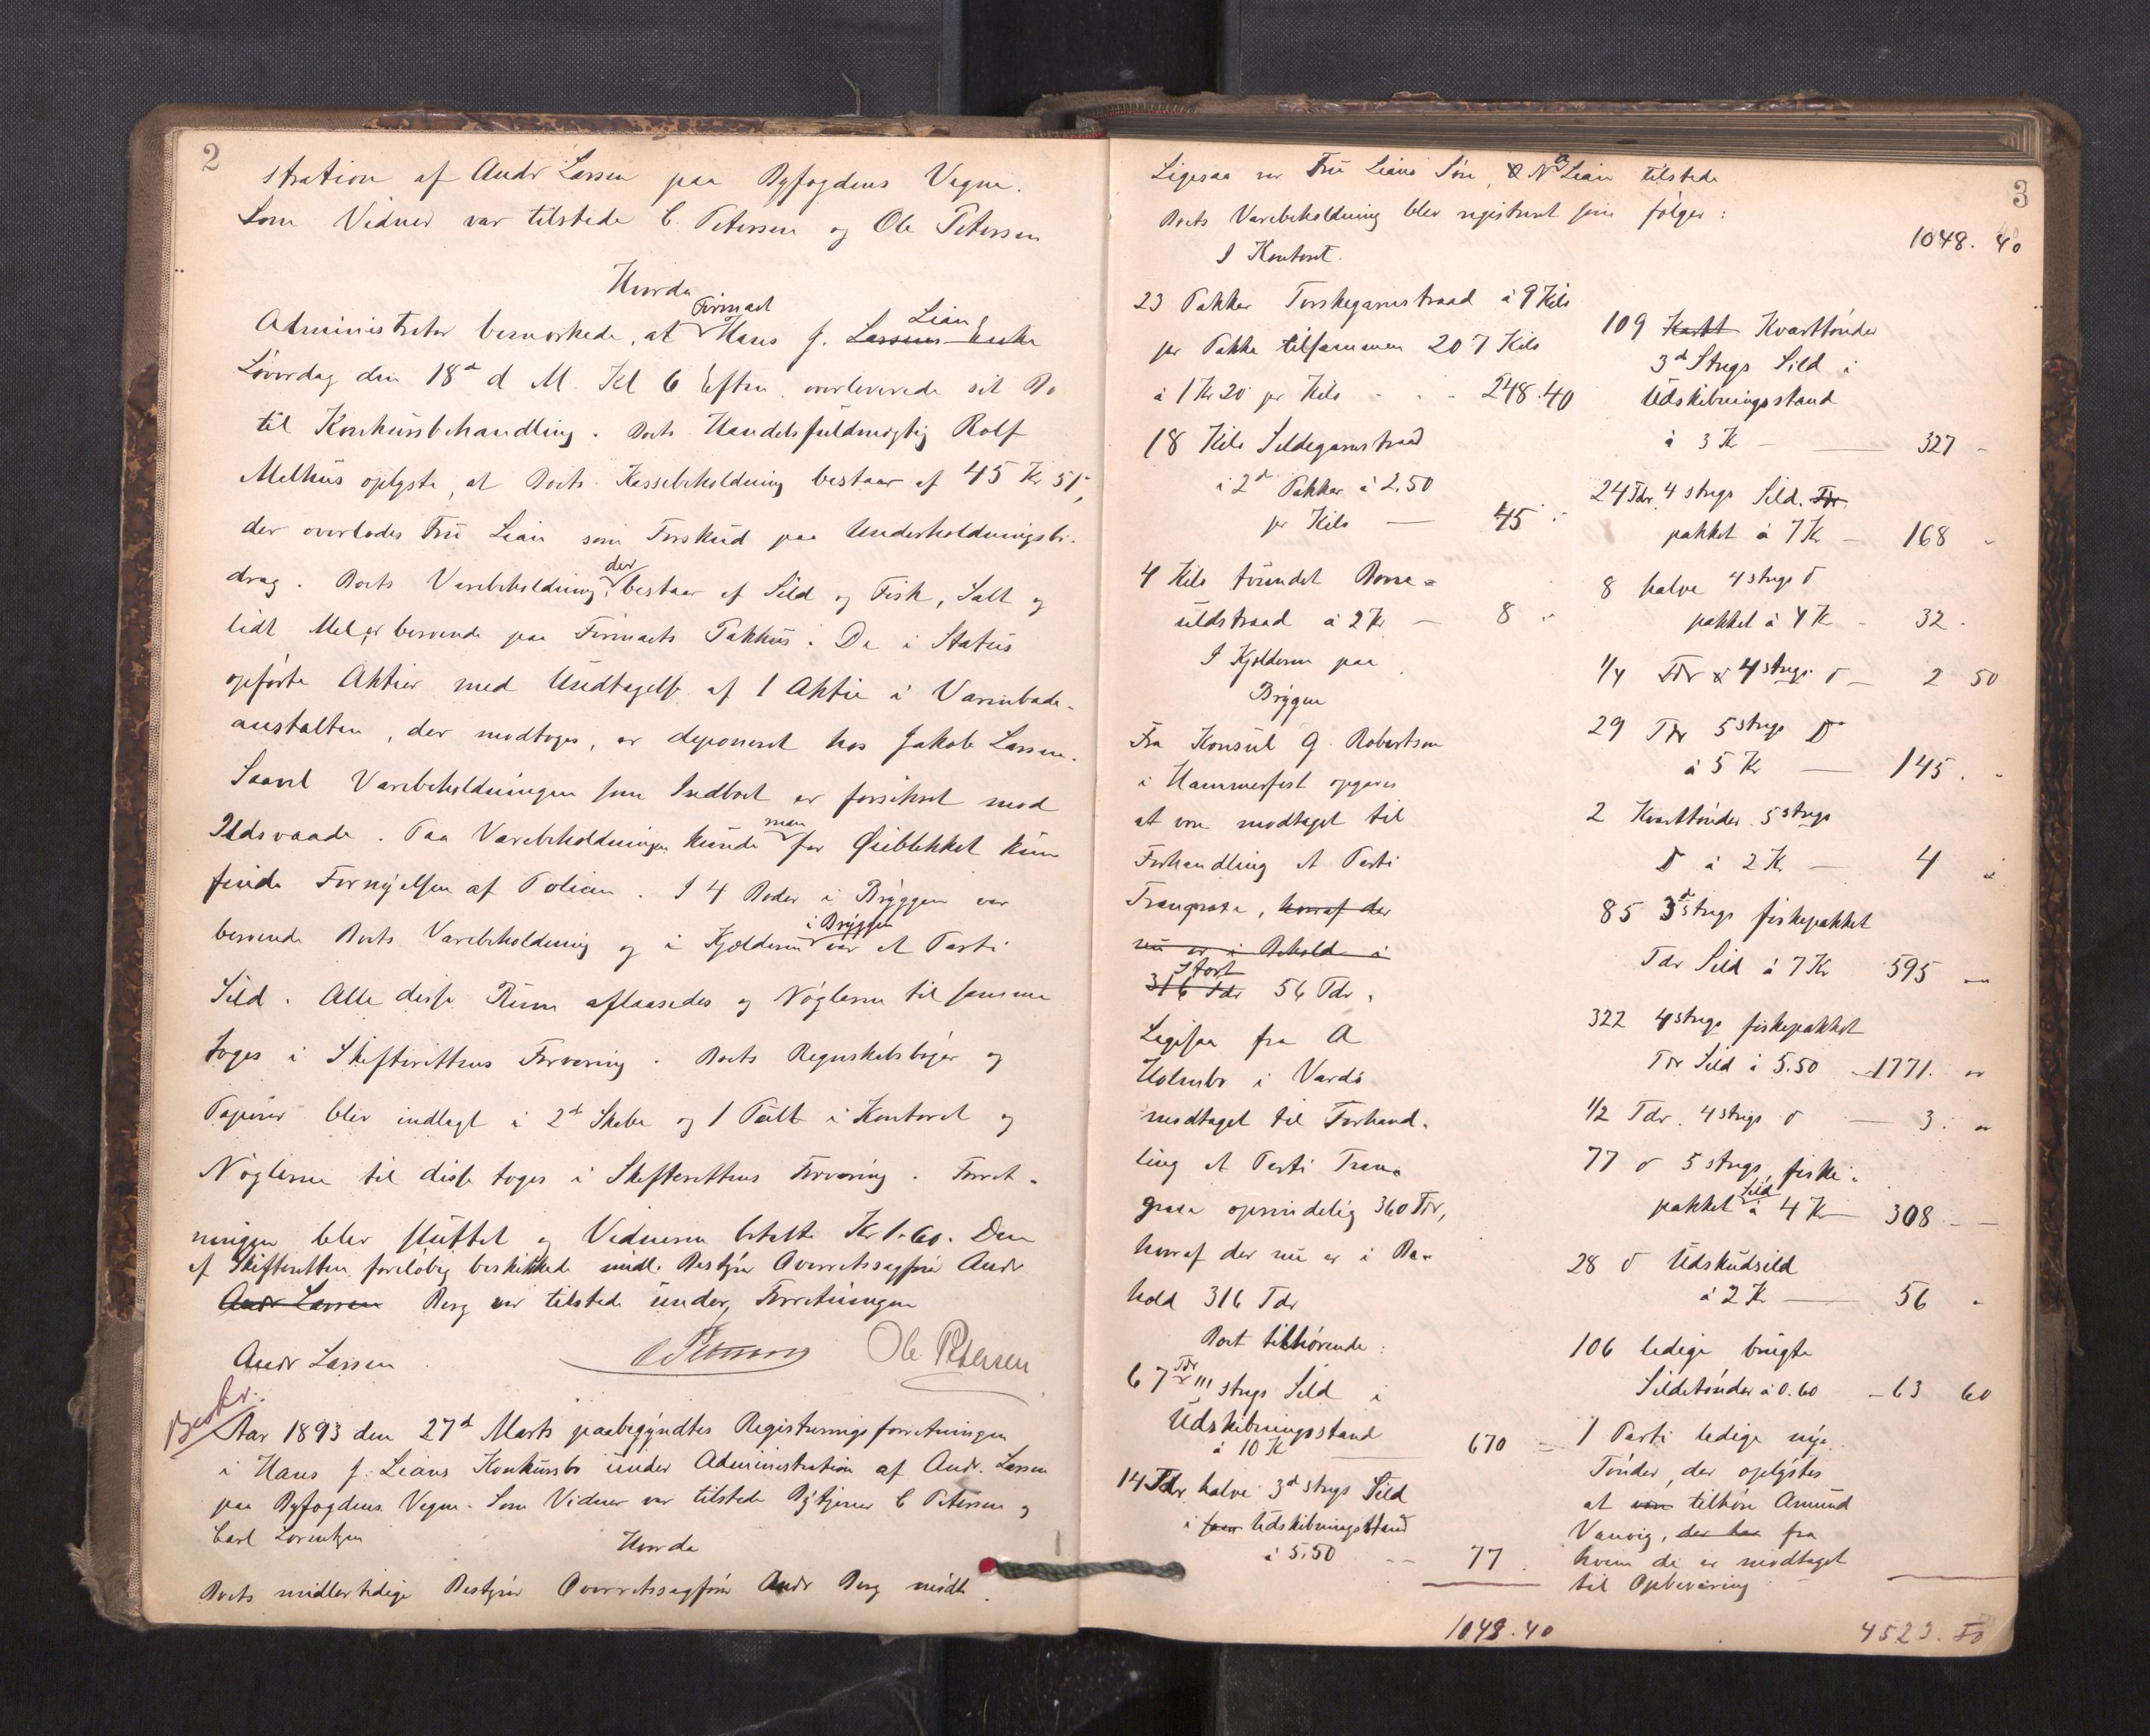 2
stration af Andr Larsen paa Byfogdens Vegne.
Som Vidner var tilstede C. Petersen og Ole Petersen
Hvorda
Administrator bemærkede, at Firmaet Hans J. Larsens Enke Lian
Løverdag den 18de d M. Kl 6 Eftm. overleverede sit Bo
til Konkursbehandling. Boets Handelsfuldmægtig Rolf
Melhus oplyste, at Boets Kassebeholdning bestaar af 45 Kr 51,
der overlodes Fru Lian som Forskud paa Underholdningsbi-
drag. Boets Varebeholdning, der bestaar af Sild og Fisk, Salt og
lidt Mel, er beroende paa Firmaets Pakhus. De i Status
opførte Aktier med Undtagelse af 1 Aktie i Varmbade-
anstalten, der modtoges, er deponeret hos Jakob Larsen.
Saavel Varebeholdningen som Indboet er forsikret mod
Ildsvaade. Paa Varebeholdningen kunde man for Øieblikket kun
finde Fornyelsen af Policen. I 4 Boder i Bryggen var
beroende Boets Varebeholdning og i Kjælderen i Bryggen var et Parti
Sild. Alle disse Rum aflaasedes og Nøglerne til samme
toges i Skifterettens Forvaring. Boets Regnskabsbøger og
Papirer blev indlagt i 2de Skabe og 1 Pult i Kontoret og
Nøglerne til disse toges i Skifterettens Forvaring. Forret-
ningen blev sluttet og Vidnerne betalte Kr 1.60. Den
af Skifteretten foreløbig beskikkede midl. Bestyrer Overretssagfører Andr
Andr Larsen Berg var tilstede under Forretningen
Andr Larsen C Petersen Ole Petersen
Beskr.
Aar 1893 den 27de Marts paabegyndtes Registreringsforretningen
i Hans J. Lians Konkursbo under Administration af Andr. Larsen
paa Byfogdens Vegne. Som Vidner var tilstede Bytjener C Petersen og
Carl Lorentzen
Hvorda
Boets midlertidige Bestyrer Overretssagfører Andr Berg mødte.
3
Ligesaa var Fru Lians Søn, N Lian tilstede
Boets Varebeholdning blev registreret som følger:
I Kontoret.
23 Pakker Torskegarnstraad à 9 Kilo
pr Pakke tilsammen 207 Kilo
à 1 Kr 20 pr Kilo - - - 248.40
18 Kilo Sildegarnstraad
i 2de Pakker à 2.50
pr Kilo — 45 -
4 Kilo tvundet Boma-
uldstraad à 2 Kr — 8 -
I Kjælderen paa
Bryggen
Fra Konsul G. Robertson
i Hammerfest opgives
at være modtaget til
Forhandling et Parti
Trangraxe, hvoraf der
nu er i Behold i
316 Tdr stort 56 Tdr.
Ligesaa fra A
Holmbo i Vardø
modtaget til Forhand-
ling et Parti Tran-
graxe oprindelig 360 Tdr,
hvoraf der nu er i Be-
hold 316 Tdr
Boet tilhørende:
67 Tdr III stregs Sild i
Udskibningsstand
à 10 K — 670 -
14 Tdr halve 3de stregs Sild
i Udskibningsstand
à 5.50 -- 77.
1048.40
1048.40
109 Kvarttønder
3de Stregs Sild i
Udskibningsstand
à 3 K — 327 -
24 Tdr. 4 stregs Sild. Tdr
pakket à 7 K — 168 -
8 halve 4 stregs do
pakket à 4 K - 32 -
1/4 Tdr 4 stregs do — 2 50
29 Tdr 5 stregs Do
à 5 K — 145. -
2 Kvarttønder 5 stregs
Do à 2 K — 4 -
85 3de stregs fiskepakket
Tdr Sild à 7 Kr 595 -
322 4 stregs fiskepakket
Tdr Sild à 5.50 - 1771. -
1/2 Tdr. 4 stregs do — 3. -
77 do 5 stregs, fiske-
pakket Sild à 4 K — 308 - -
28 do Udskudsild
à 2 K — 56 -
106 ledige brugte
Sildetønder à 0.60 - 63 60
1 Parti ledige nye
Tønder, der oplystes
at være tilhøre Amund
Vanvig, der har fra
hvem de er modtaget
til Opbevaring.
4523.50